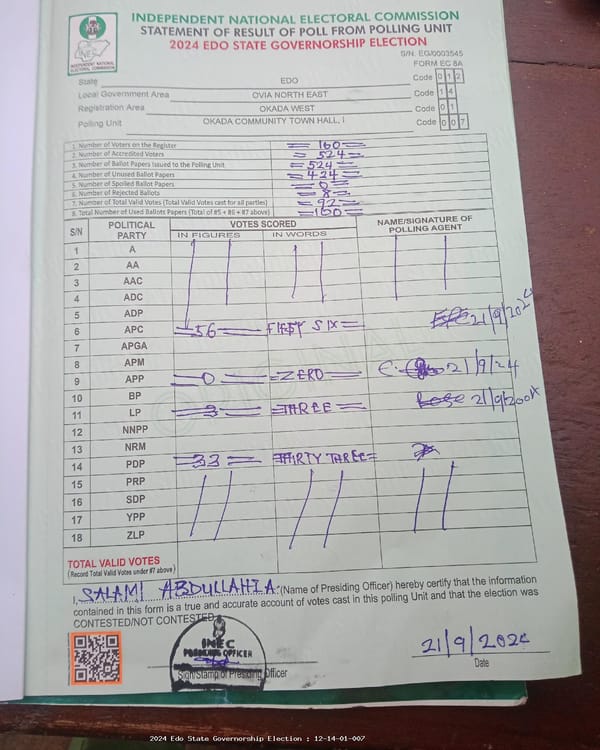 INDEPENDENT NATIONAL ELECTORAL COMMISSION
STATEMENT OF RESULT OF POLL FROM POLLING UNIT
2024 EDO STATE GOVERNORSHIP ELECTION
S/N. EG/0003545
FORM EC 8A
INEC
INDEPENDENT NATIONAL ELECTORAL COMMISSION
State EDO Code 0 1 2
Local Government Area OVIA NORTH EAST Code 1 4
Registration Area OKADA WEST Code 0 1
Polling Unit OKADA COMMUNITY TOWN HALL, I Code 0 0 7
1. Number of Voters on the Register = 160 =
2. Number of Accredited Voters = 524 =
3. Number of Ballot Papers Issued to the Polling Unit = 524 =
4. Number of Unused Ballot Papers = 424 =
5. Number of Spoiled Ballot Papers = 0 =
6. Number of Rejected Ballots = 8 =
7. Number of Total Valid Votes (Total Valid Votes cast for all parties) = 92 =
8. Total Number of Used Ballots Papers (Total of #5 + #6 + #7 above) = 100 =
S/N POLITICAL PARTY VOTES SCORED NAME/SIGNATURE OF POLLING AGENT
IN FIGURES IN WORDS
1 A
2 AA
3 AAC
4 ADC
5 ADP
6 APC = 56 = FIFTY SIX = 21/9/2024
7 APGA
8 APM
9 APP = 0 = = ZERO = 21/9/24
10 BP
11 LP = 3 = = THREE = 21/9/2004
12 NNPP
13 NRM
14 PDP = 33 = = THIRTY THREE =
15 PRP
16 SDP
17 YPP
18 ZLP
TOTAL VALID VOTES
(Record Total Valid Votes under #7 above)
I, SALAMI ABDULLAHI A. (Name of Presiding Officer) hereby certify that the information
contained in this form is a true and accurate account of votes cast in this polling Unit and that the election was
CONTESTED/NOT CONTESTED
INEC
PRESIDING OFFICER
21/9/2024
Sign/Stamp of Presiding Officer
Date
2024 Edo State Governorship Election : 12-14-01-007